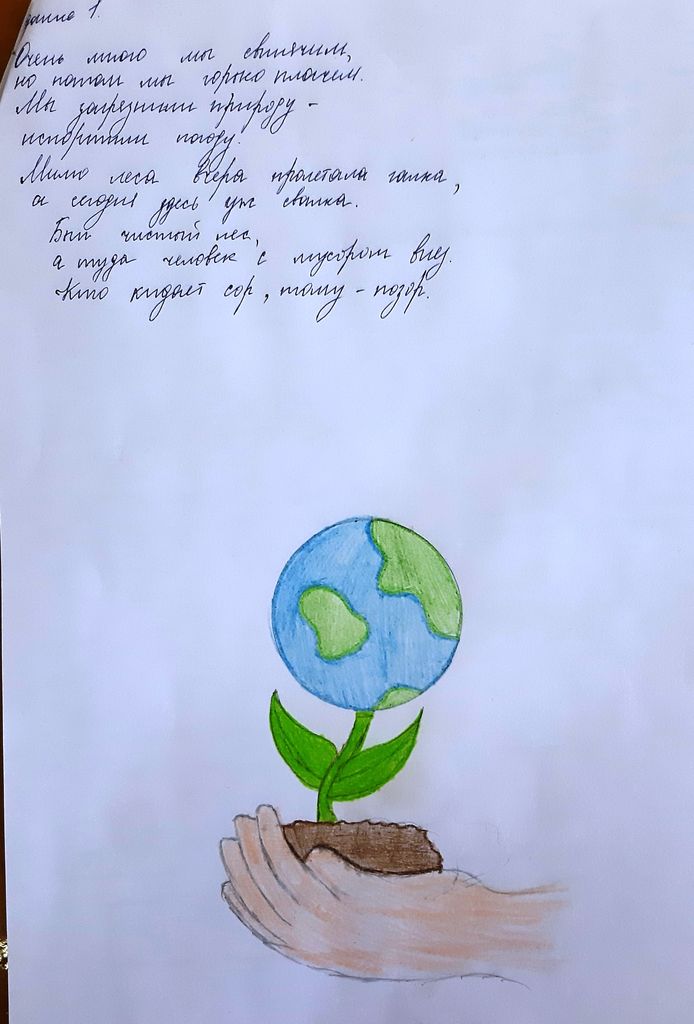 1.
Очень много мы свинячим,
но потом мы горько плачем.
Мы загрязнили природу -
испортили погоду.
Мимо леса вчера пролетала галка,
а сегодня здесь уж свалка.
Был чистый лес,
а туда человек с мусором влез.
Кто кидает сор, тому - позор.